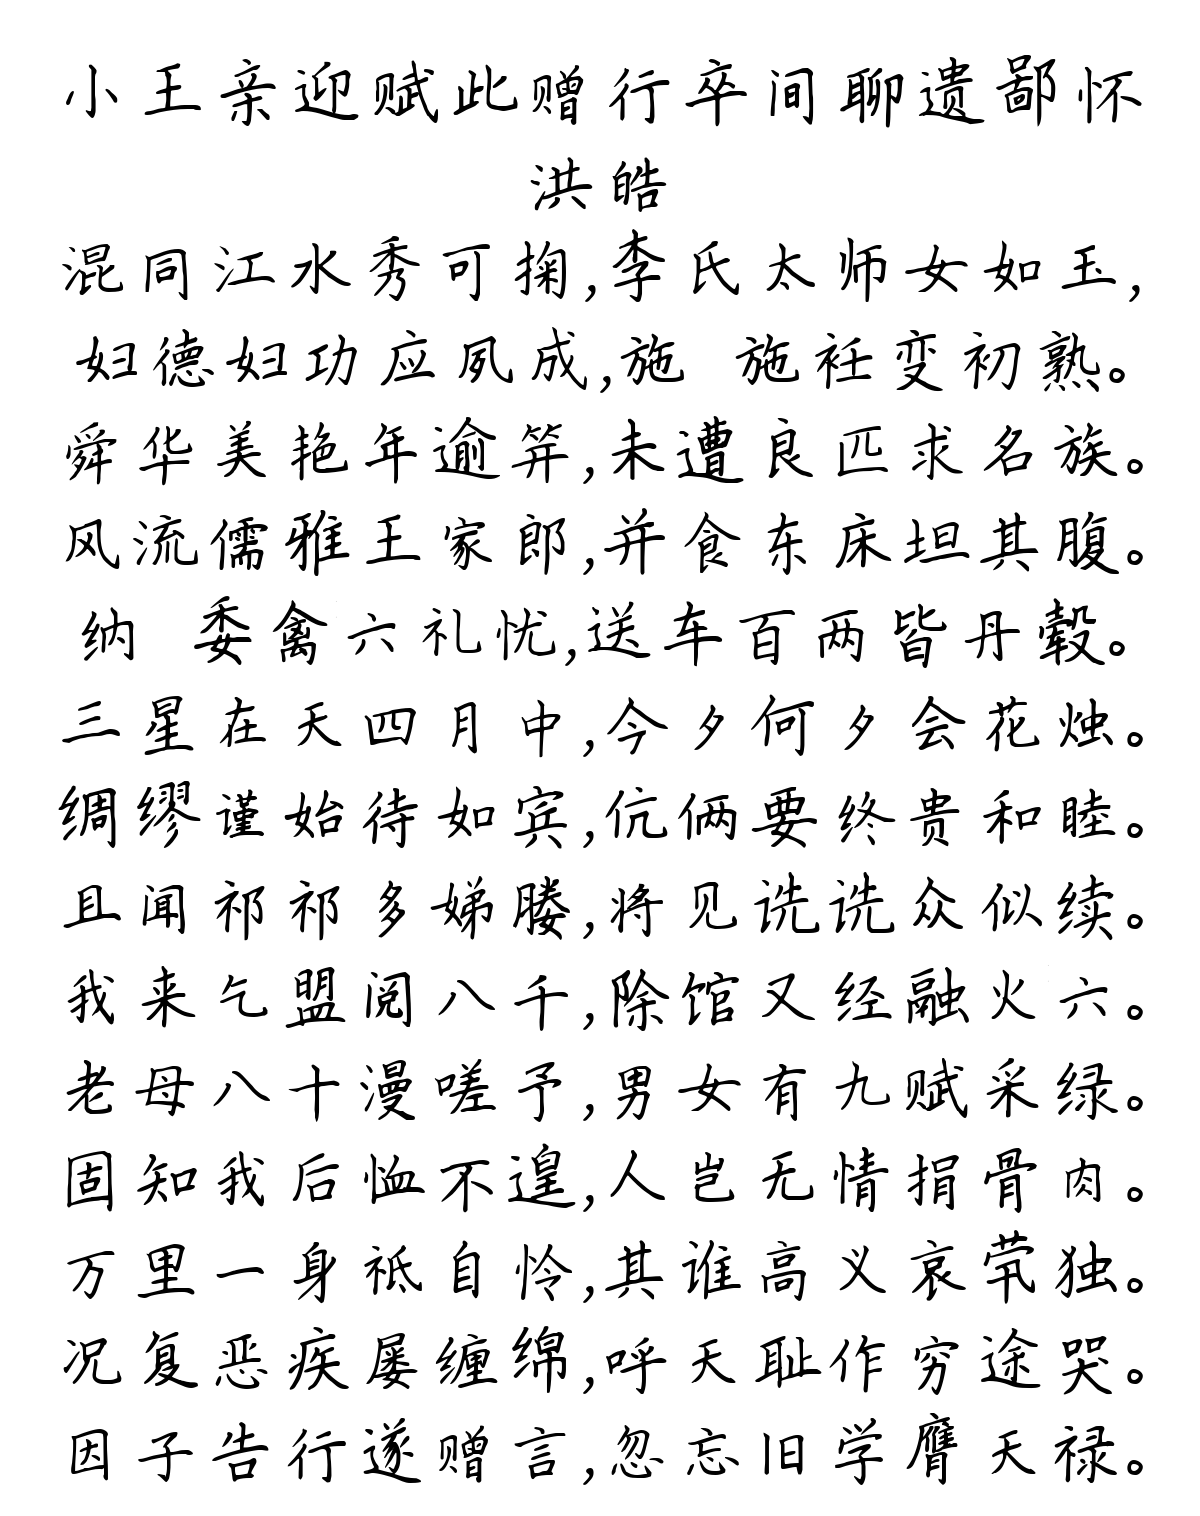 小王亲迎赋此赠行卒间聊遗鄙怀
洪皓
混同江水秀可掬,李氏太师女如玉,
妇德妇功应夙成,施 施衽变初熟。
舜华美艳年逾笄,未遭良匹求名族。
风流儒雅王家郎,并食东床坦其腹。
纳 委禽六礼忧,送车百两皆丹毂。
三星在天四月中,今夕何夕会花烛。
绸缪谨始待如宾,伉俩要终贵和睦。
且闻祁祁多娣媵,将见诜诜众似续。
我来乞盟阅八千,除馆又经融火六。
老母八十漫嗟予,男女有九赋采绿。
固知我后恤不遑,人岂无情捐骨肉。
万里一身祗自怜,其谁高义哀茕独。
况复恶疾屡缠绵,呼天耻作穷途哭。
因子告行遂赠言,忽忘旧学膺天禄。